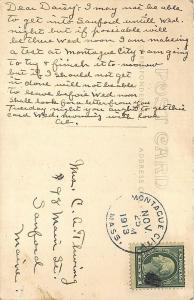 Dear Daisy:- I may not be able
to get into Sanford until Wed.
night but if possible will
be thru Wed noon I am making
a test at Montague City & am going
to try & finish it to-morrow
but if I should not get
it done will not be able
to leave before Wed noon
shall look for a letter from you
Tuesday night you ought to get this
card Wed. morning with love
POST CARD
ADDRESS
Mrs. C. A. Fleming
98 Main St.
Sanford
Maine
MONTAGUE CITY
NOV
1913
MASS.